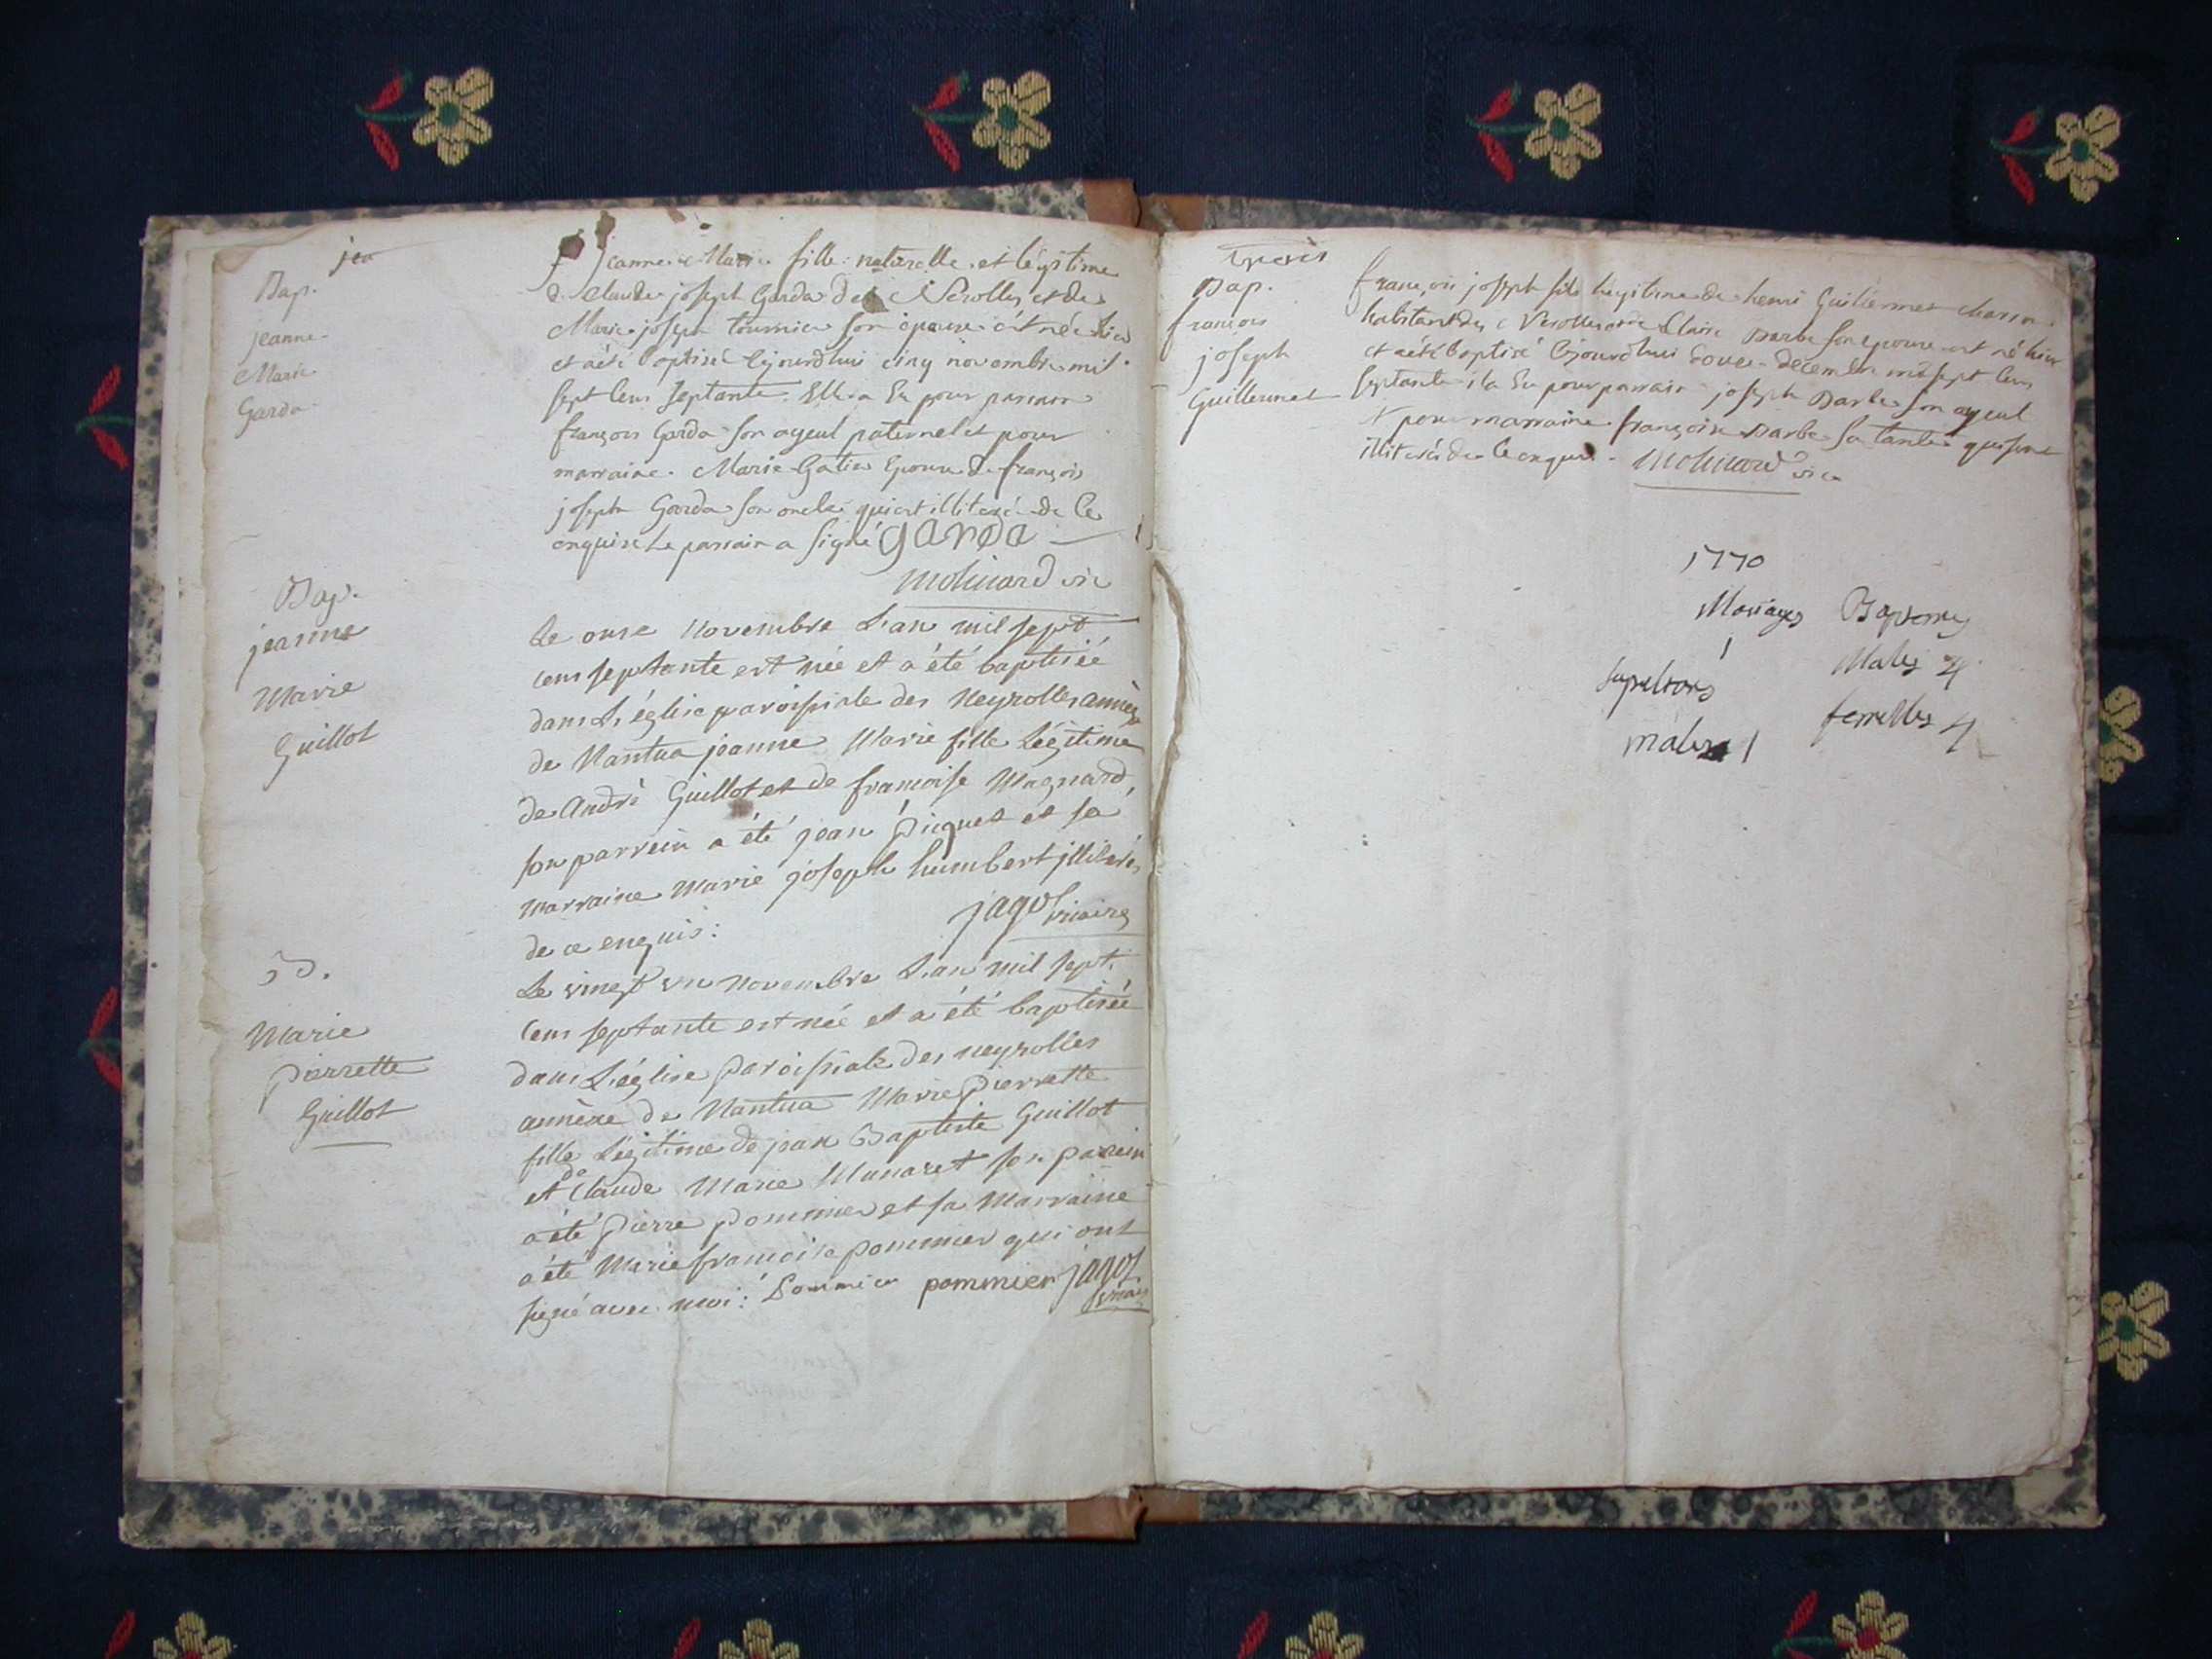 jea
Bap.
jeanne
Marie
Garda
Jeanne Marie fille naturelle et légitime
de Claude joseph Garda des Nerolles et de
Marie joseph tournier son épouse est née hier
et a été baptisé cejourdhui cinq novembre mil
sept cens septante. Elle a Eu pour parrain
françois Garda son ayeul paternel et pour
marraine. Marie Épouse de françois
joseph Garda son oncle qui est illiteré de ce
enquise Le parrain a signé garda
molinard vic
Bap.
jeanne
Marie
Guillot
Le onse Novembre L'an mil sept
cens septante est née et a été baptisée
dans L'église paroissiale des Neyrolles annèxe
de Nantua jeanne Marie fille Légitime
de André Guillot et de francoise Magnard,
son parrein a été jean Piquet et sa
marraine Marie joseph humbert jllitérés
de ce enquis: jagot vicaire
Marie
pierrette
Guillot
Le vingt un Novembre L'an mil sept
cens septante est née et a été baptisée
dans L'église paroissiale des neyrolles
annèxe de Nantua Marie pierrette
fille Légitime de jean Baptiste Guillot
et de Claude Marie Munaret son parein
a été pierre pommier et sa Marraine
a été Marie francoise pommier qui ont
signé avec moi: Pommier pommier jagot
vicaire
Bap.
francois
joseph
Guillermet
françois joseph fils legitime de henri Guillermet
habitant des Nerolles et de Claire Barbe son epouse est né hier
et a été baptisé cejourdhui douze decembre mil sept cens
septante il a Eu pour parrain joseph Barbe son ayeul
et pour marraine françoise Barbe sa tante qui sont
illiterés de ce enquis. molinard vic
1770
Mariages Baptemes
1 Males 4
sepultures
femelles 4
males 1